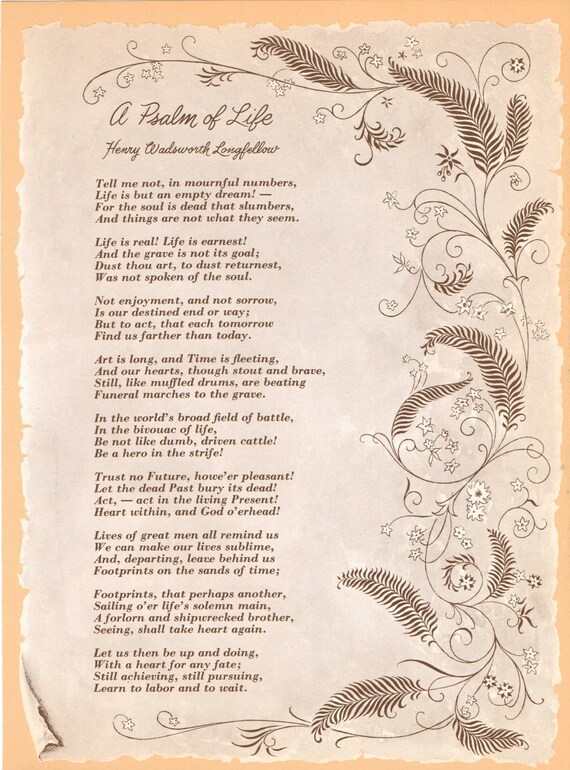 A Psalm of Life
Henry Wadsworth Longfellow
Tell me not, in mournful numbers,
Life is but an empty dream! —
For the soul is dead that slumbers,
And things are not what they seem.
Life is real! Life is earnest!
And the grave is not its goal;
Dust thou art, to dust returnest,
Was not spoken of the soul.
Not enjoyment, and not sorrow,
Is our destined end or way;
But to act, that each tomorrow
Find us farther than today.
Art is long, and Time is fleeting,
And our hearts, though stout and brave,
Still, like muffled drums, are beating
Funeral marches to the grave.
In the world's broad field of battle,
In the bivouac of life,
Be not like dumb, driven cattle!
Be a hero in the strife!
Trust no Future, howe'er pleasant!
Let the dead Past bury its dead!
Act, — act in the living Present!
Heart within, and God o'erhead!
Lives of great men all remind us
We can make our lives sublime,
And, departing, leave behind us
Footprints on the sands of time;
Footprints, that perhaps another,
Sailing o'er life's solemn main,
A forlorn and shipwrecked brother,
Seeing, shall take heart again.
Let us then be up and doing,
With a heart for any fate;
Still achieving, still pursuing,
Learn to labor and to wait.